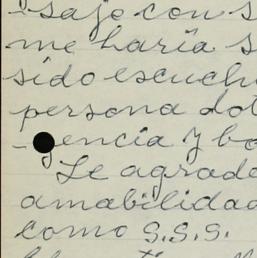 -saje con s
me haría s
sido escuch
persona dot
-gencia y bo
Le agrade
amabilidad
como S.S.S.